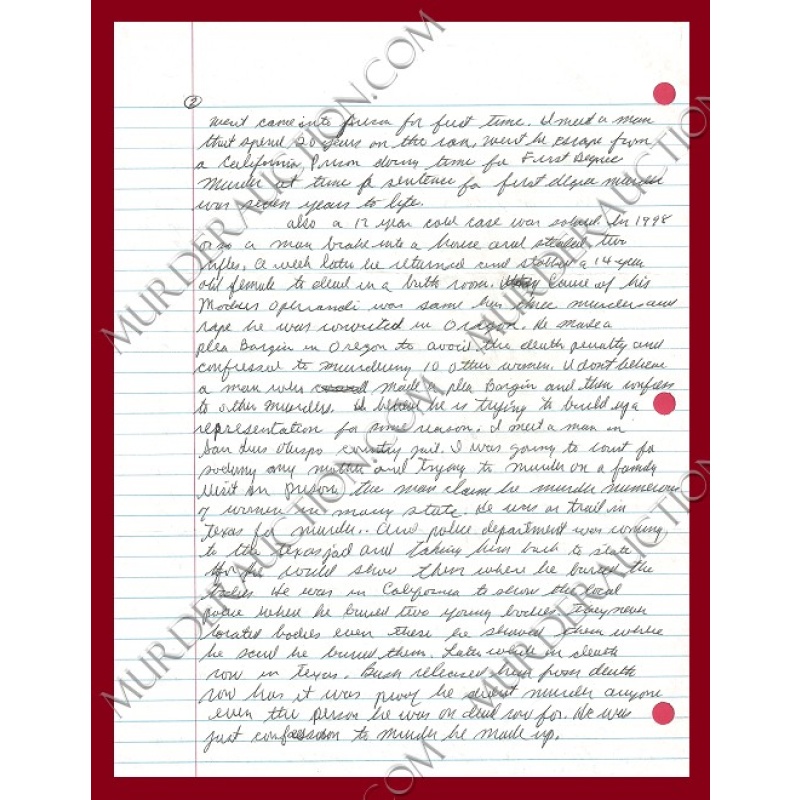 2
went came into prison for first time. I meet a man
that spend 20 years on the ran, went he escape from
a California Prison doing time for First Degree
Murder at time a sentence for first degree murder
was seven years to life.
also a 12 year cold case was solved. In 1998
or so a man brake into a house and two
rifles. A week later he returned and a 14 year
old female to dead in a bath room. Cause of his
Modus Operandi was same has three murders and
rape he was in Oregon. He made a
plea Bargin in Oregon to avoid the death penalty and
confessed to murdering 10 other women. I dont believe
a man who made a plea Bargin and then confess
to other murders. I he is trying to build up a
representation for some reason. I meet a man in
San Luis Obispo country jail. I was going to court fo
sodomy my mother and Trying to murder on a family
visit in prison the man claim he murder numerous
of women in many state. He was on trail in
Texas for murder. And police department was coming
to the Texas jail and taking him back to state
would show them where he buried the
bodies. He was in California to show the local
police where he buried two young bodies. They never
located bodies even these he showed them where
he said he buried them. Later while on death
row in Texas. Bush released him from death
row has it was proof he didnt murder anyone
even the person he was on dead row for. He was
just to murder he made up.
MURDERAUCTION.COM